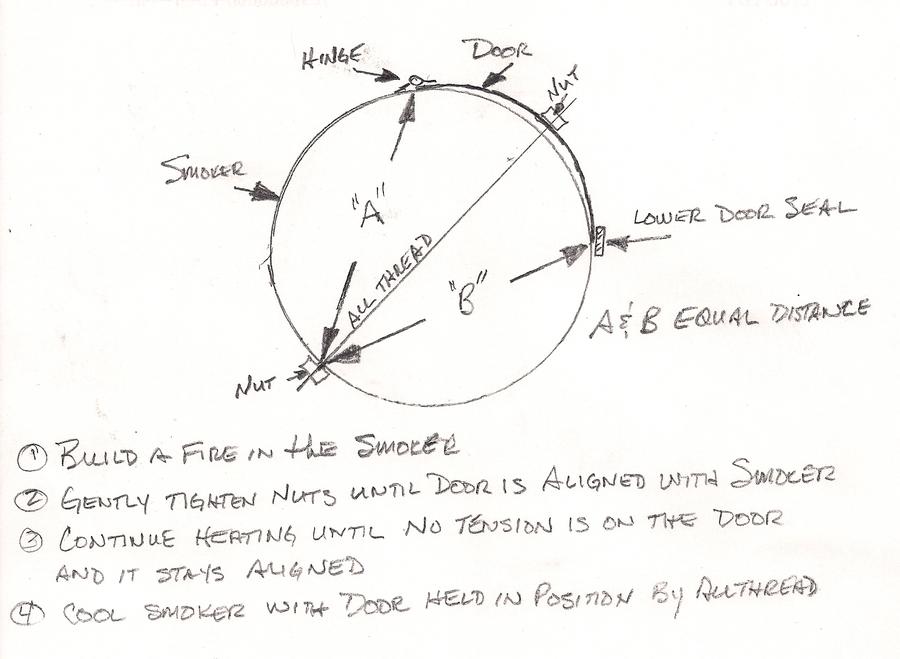 HINGE
DOOR
NUT
SMOKER
"A"
LOWER DOOR SEAL
ALL THREAD
"B"
A & B EQUAL DISTANCE
NUT
① BUILD A FIRE IN THE SMOKER
② GENTLY TIGHTEN NUTS UNTIL DOOR IS ALIGNED WITH SMOKER
③ CONTINUE HEATING UNTIL NO TENSION IS ON THE DOOR
AND IT STAYS ALIGNED
④ COOL SMOKER WITH DOOR HELD IN POSITION BY ALLTHREAD